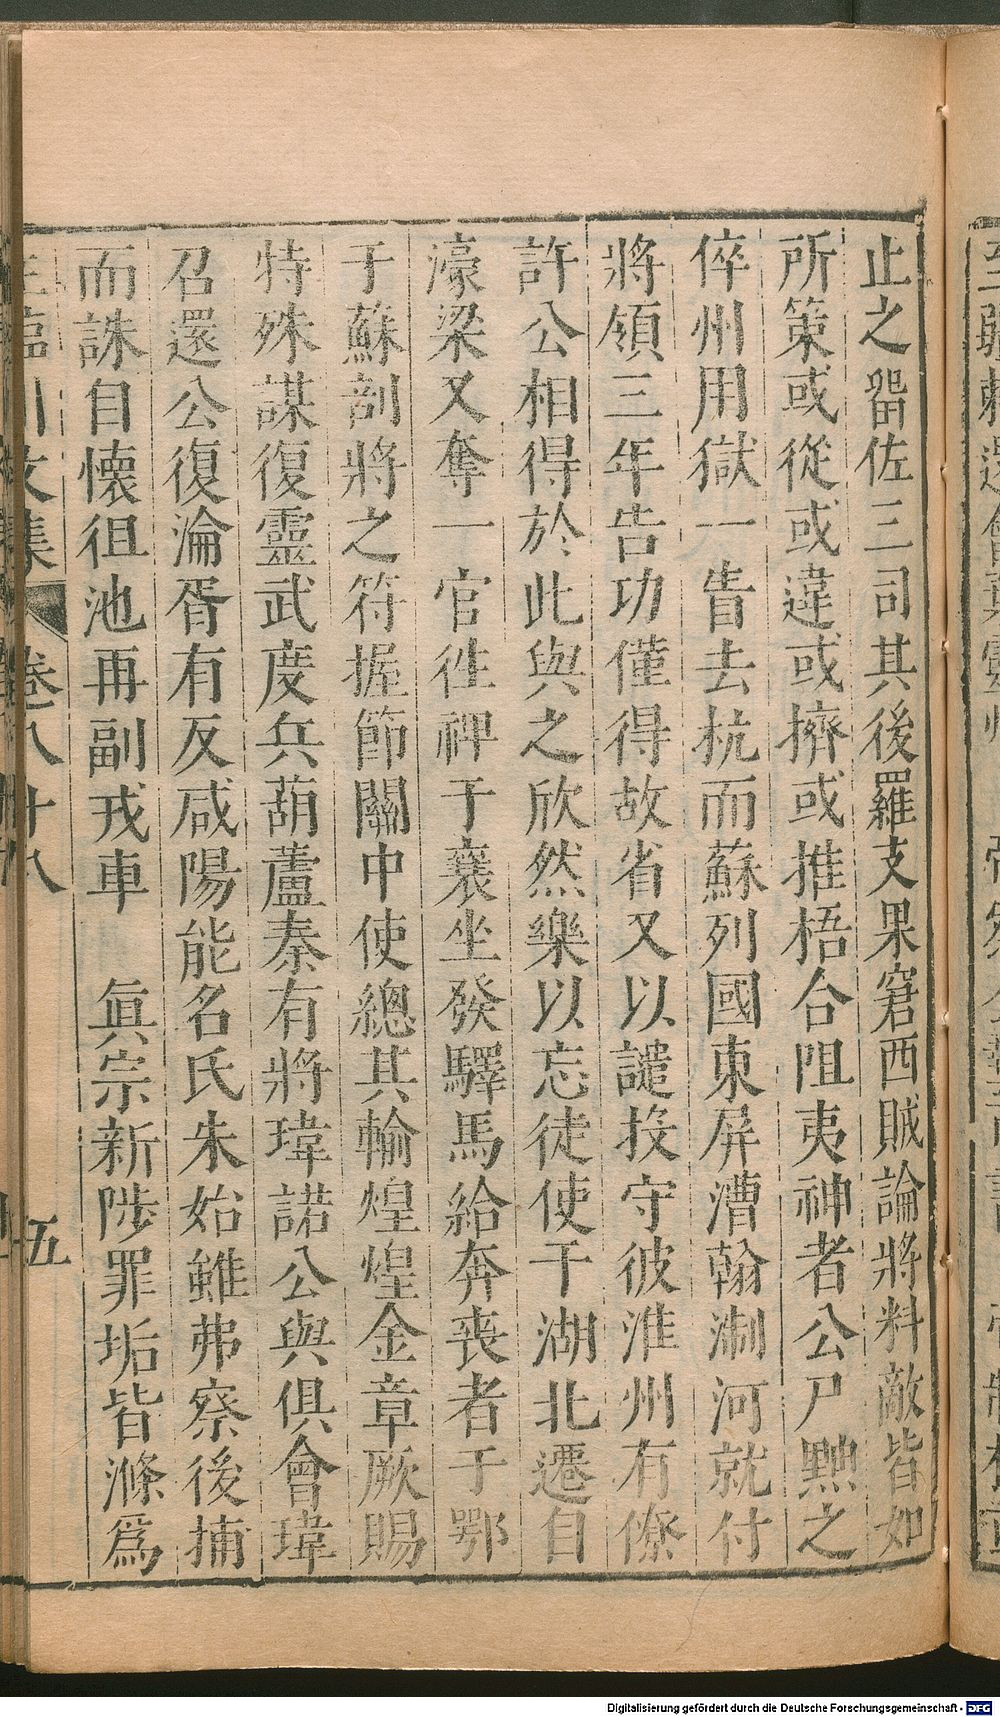 止之畱佐三司其後羅支果窘西賊論將料敵皆如
所策或從或違或擠或推梧合阻夷神者公尸黥之
倅州用獄一眚去杭而蘇列國東屏漕翰淛河就付
將領三年告功僅得故省又以譴投守彼淮州有僚
許公相得於此與之欣然樂以忘徒使于湖北遷自
濠梁又奪一官徃禆于襄坐發驛馬給奔喪者于鄂
于蘇剖將之符握節關中使總其輸煌煌金章厥賜
特殊謀復靈武度兵葫蘆秦有將瑋諾公與俱會瑋
召還公復淪胥有反咸陽能名氏朱始雖弗察後捕
而誅自懷徂池再副戎車 眞宗新陟罪垢皆滌爲
王臨川文集 卷八十八 五
Digitalisierung gefördert durch die Deutsche Forschungsgemeinschaft - DFG